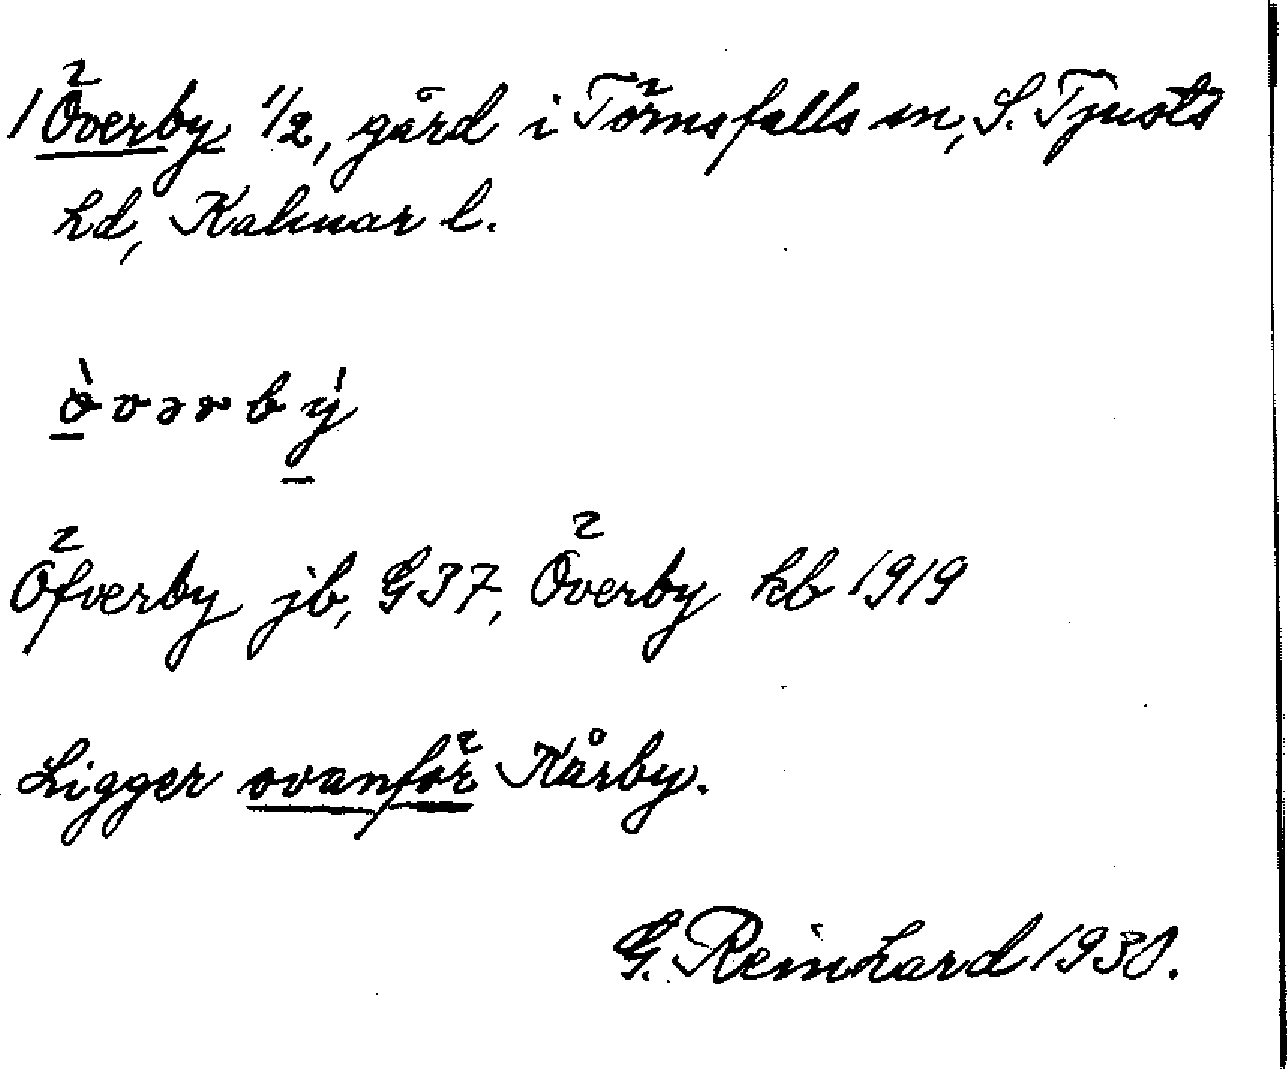 1 Överby 1/2, gård i Törnsfalls sn, S. Tjusts
hd, Kalmar l.
ö̀vərbý
Öfverby jb, G37, Överby kb 1919
Ligger ovanför Kårby.
G. Reinhard 1930.